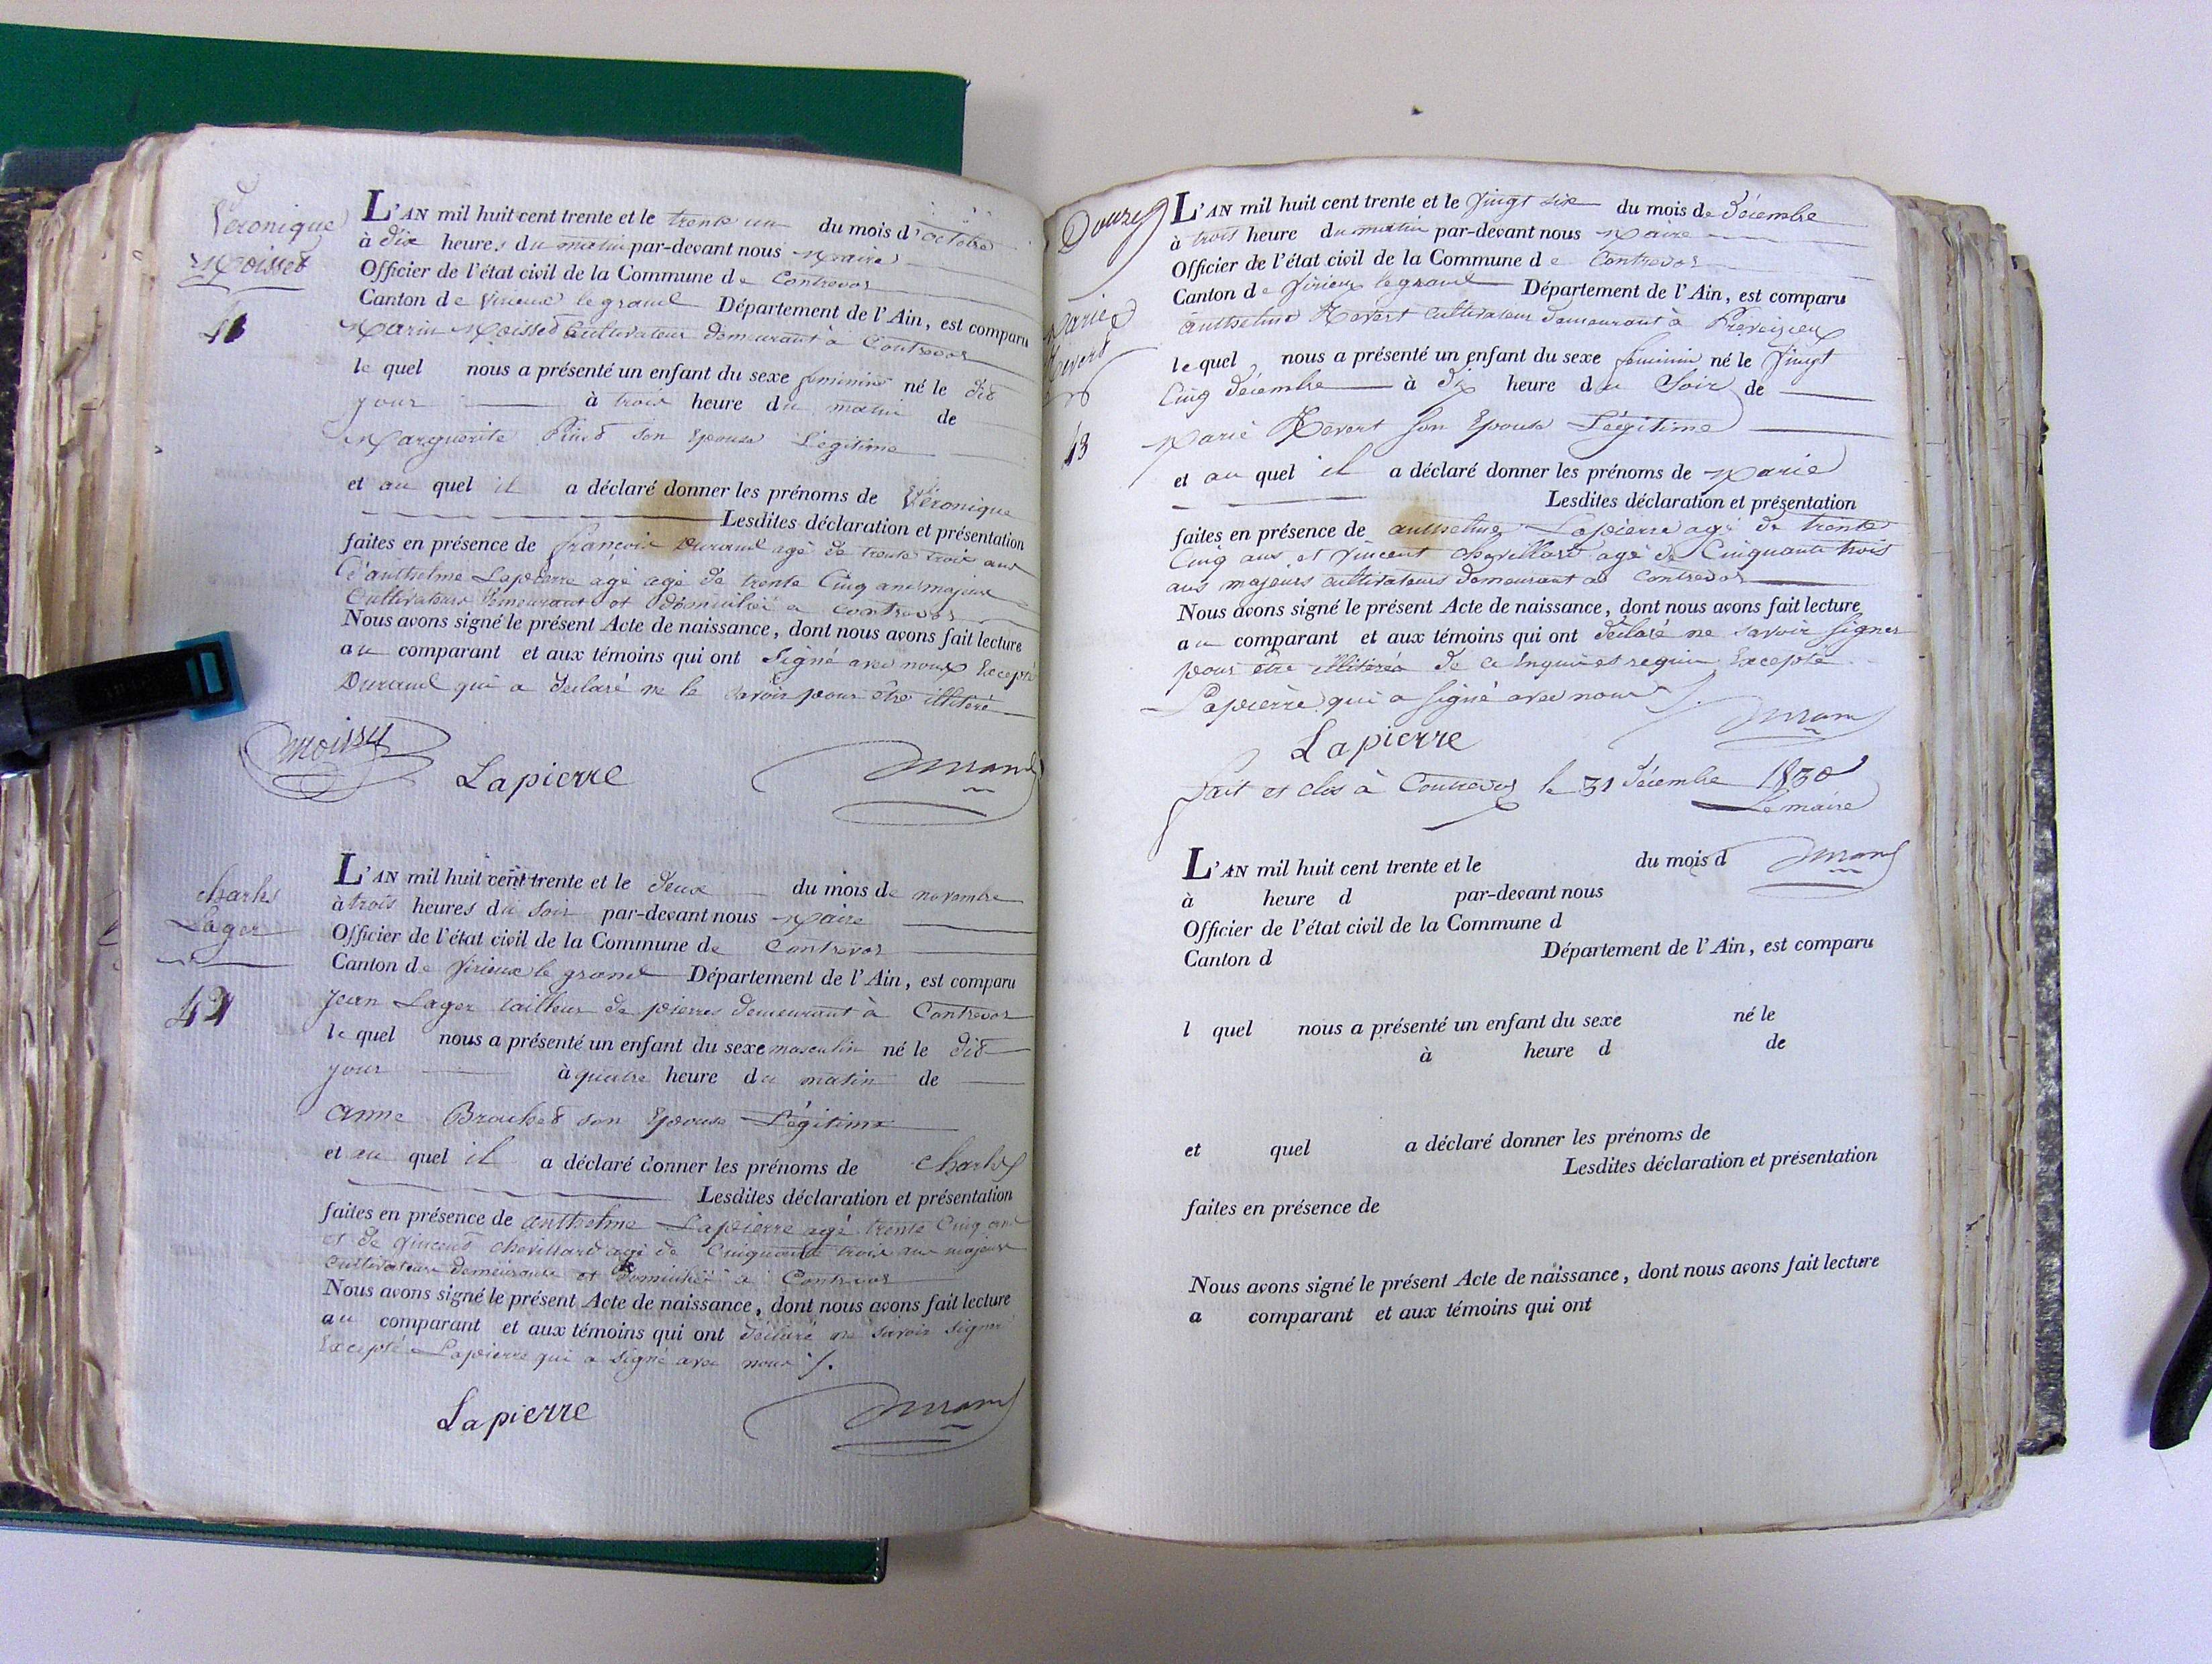 Veronique
Moisset
L'AN mil huit cent trente et le trente un du mois d'octobre
à dix heures du matin par-devant nous Maire
Officier de l'état civil de la Commune de Contrevoz
Canton de Virieux le grand Département de l'Ain, est comparu
Marin Moisset Cultivateur demeurant à Contrevoz
le quel nous a présenté un enfant du sexe feminin né le dit
jour à trois heure du matin de
Marguerite son Epouse Légitime
et au quel il a déclaré donner les prénoms de Véronique
Lesdites déclaration et présentation
faites en présence de françois Durand agé de trente trois ans
d'anthelme Lapierre agé agé de trente Cinq ans majeurs
Cultivateurs demeurant et domicilié a contrevoz
Nous avons signé le présent Acte de naissance, dont nous avons fait lecture
au comparant et aux témoins qui ont Signé avec nous Excepté
Durand qui a declaré ne le savoir pour être illitéré
moisset
Lapierre
Durand
charles
Lager
42
L'AN mil huit cent trente et le deux du mois de novembre
à trois heures du soir par-devant nous Maire
Officier de l'état civil de la Commune de Contrevoz
Canton de Virieux le grand Département de l'Ain, est comparu
Jean Lager tailleur de pierres demeurant à Contrevoz
le quel nous a présenté un enfant du sexe masculin né le dit
jour à quatre heure du matin de
anne Brochet son Epouse Légitime
et au quel il a déclaré donner les prénoms de charles
Lesdites déclaration et présentation
faites en présence de anthelme Lapierre agé trente Cinq ans
et de Vincent chevillard agé de Cinquante trois ans majeurs
cultivateurs demeurants et domicilié a Contrevoz
Nous avons signé le présent Acte de naissance, dont nous avons fait lecture
au comparant et aux témoins qui ont déclaré ne savoir signer
Excepté Lapierre qui a signé avec nous /.
Lapierre
Durand
Douze
Marie
Revert
43
L'AN mil huit cent trente et le Vingt six du mois de décembre
à trois heure du matin par-devant nous Maire
Officier de l'état civil de la Commune de Contrevoz
Canton de Virieux le grand Département de l'Ain, est comparu
anthelme Revert cultivateur demeurant à Preveizieu
le quel nous a présenté un enfant du sexe feminin né le Vingt
Cinq décembre à dix heure du Soir de
Marie Revert son Epouse Légitime
et au quel il a déclaré donner les prénoms de Marie
Lesdites déclaration et présentation
faites en présence de anthelme Lapierre agé de trente
Cinq ans et Vincent chevillard agé de Cinquante trois
ans majeurs cultivateurs demeurant a Contrevoz
Nous avons signé le présent Acte de naissance, dont nous avons fait lecture
au comparant et aux témoins qui ont déclaré ne savoir signer
pour être illiterés de ce Enquis et requis Excepté
Lapierre qui a signé avec nous /.
Durand
Lapierre
fait et clos à Contrevoz le 31 décembre 1830
Le maire
Durand
L'AN mil huit cent trente et le du mois d
à heure d par-devant nous
Officier de l'état civil de la Commune d
Canton d Département de l'Ain, est comparu
l quel nous a présenté un enfant du sexe né le
à heure d de
et quel a déclaré donner les prénoms de
Lesdites déclaration et présentation
faites en présence de
Nous avons signé le présent Acte de naissance, dont nous avons fait lecture
a comparant et aux témoins qui ont